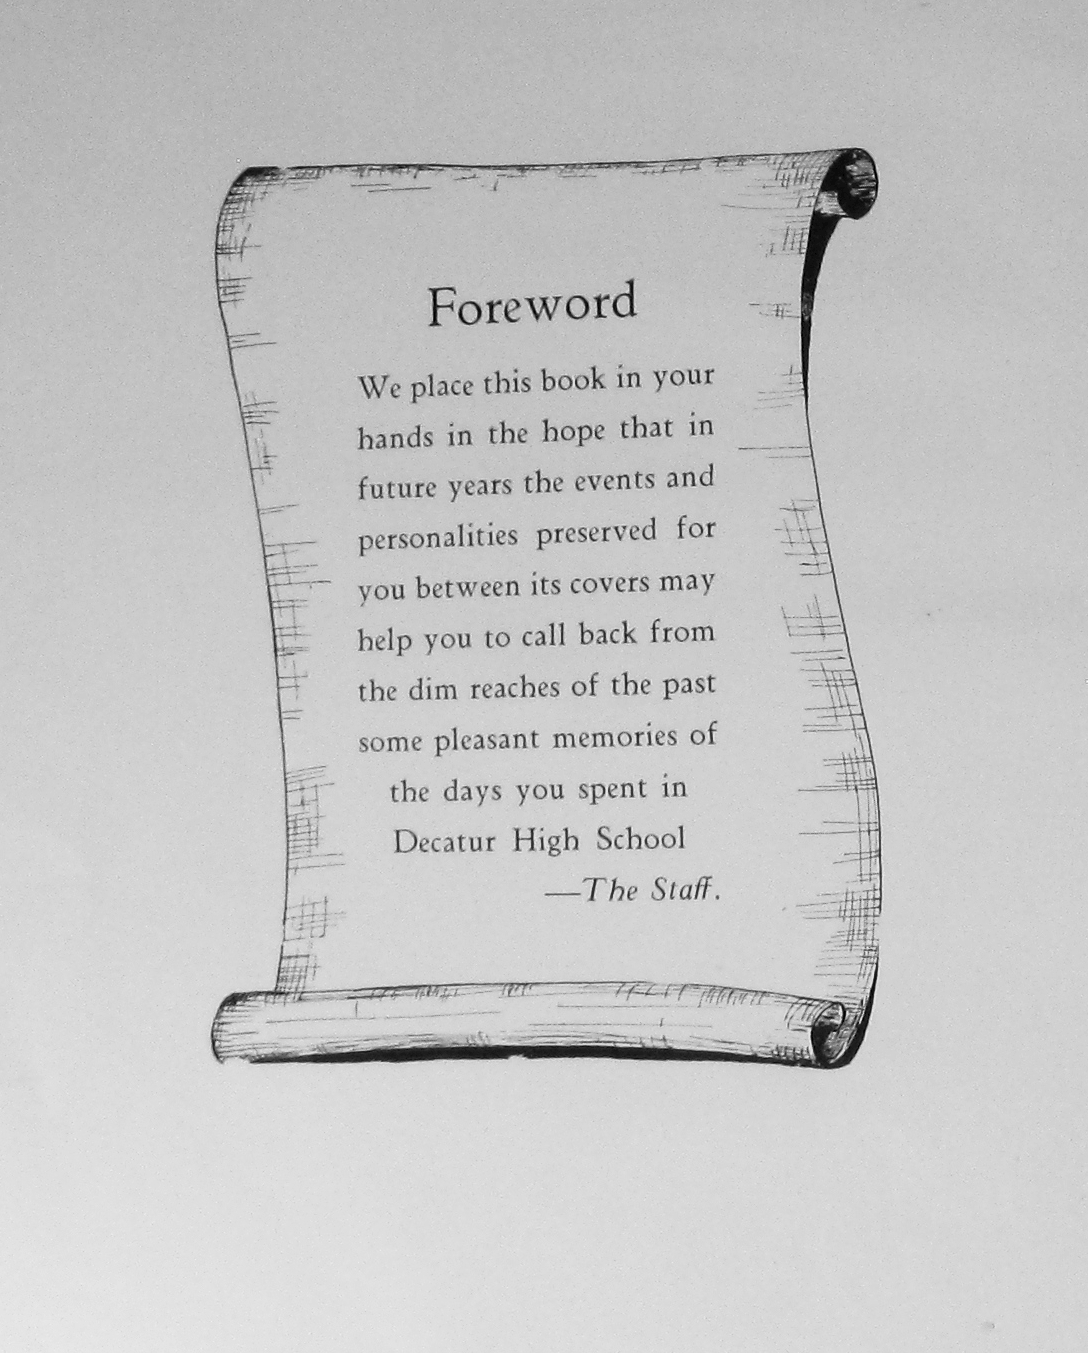 Foreword
We place this book in your
hands in the hope that in
future years the events and
personalities preserved for
you between its covers may
help you to call back from
the dim reaches of the past
some pleasant memories of
the days you spent in
Decatur High School
—The Staff.